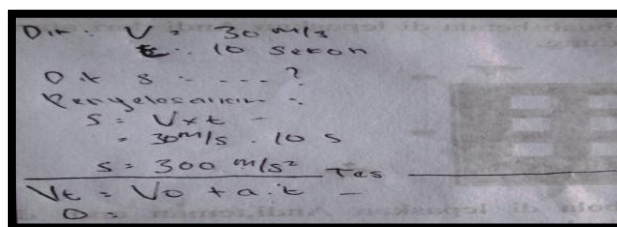 Dik : V = 30 m/s
t : 10 sekon
Dit s = - - - ?
Penyelesaian :
S = V x t
= 30 m/s . 10 s
S = 300 m/s²
Tes
Vt = Vo + a . t
0 =